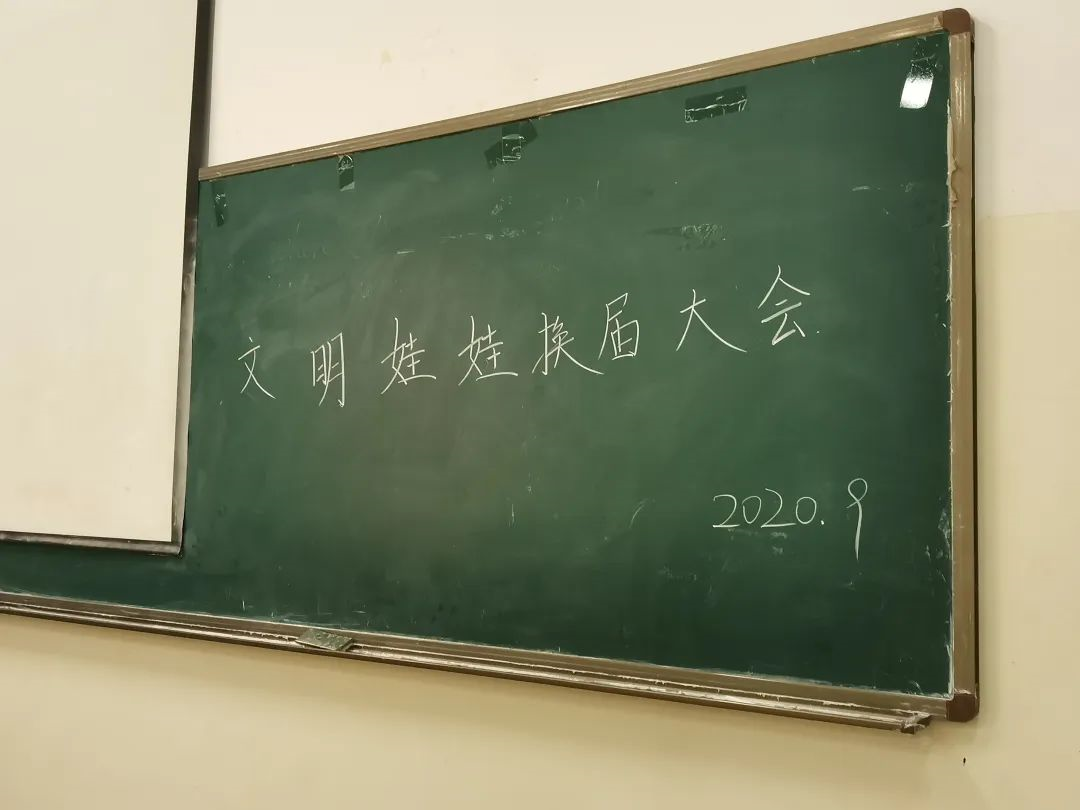 文明娃娃换届大会
2020.9